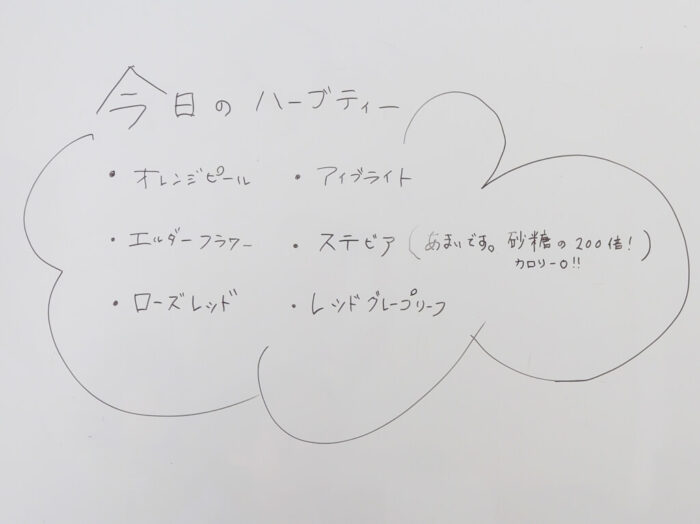 今日のハーブティー
・オレンジピール
・アイブライト
・エルダーフラワー
・ステビア(あまいです。砂糖の200倍!
カロリー0!!)
・ローズレッド
・レッドグレープリーフ